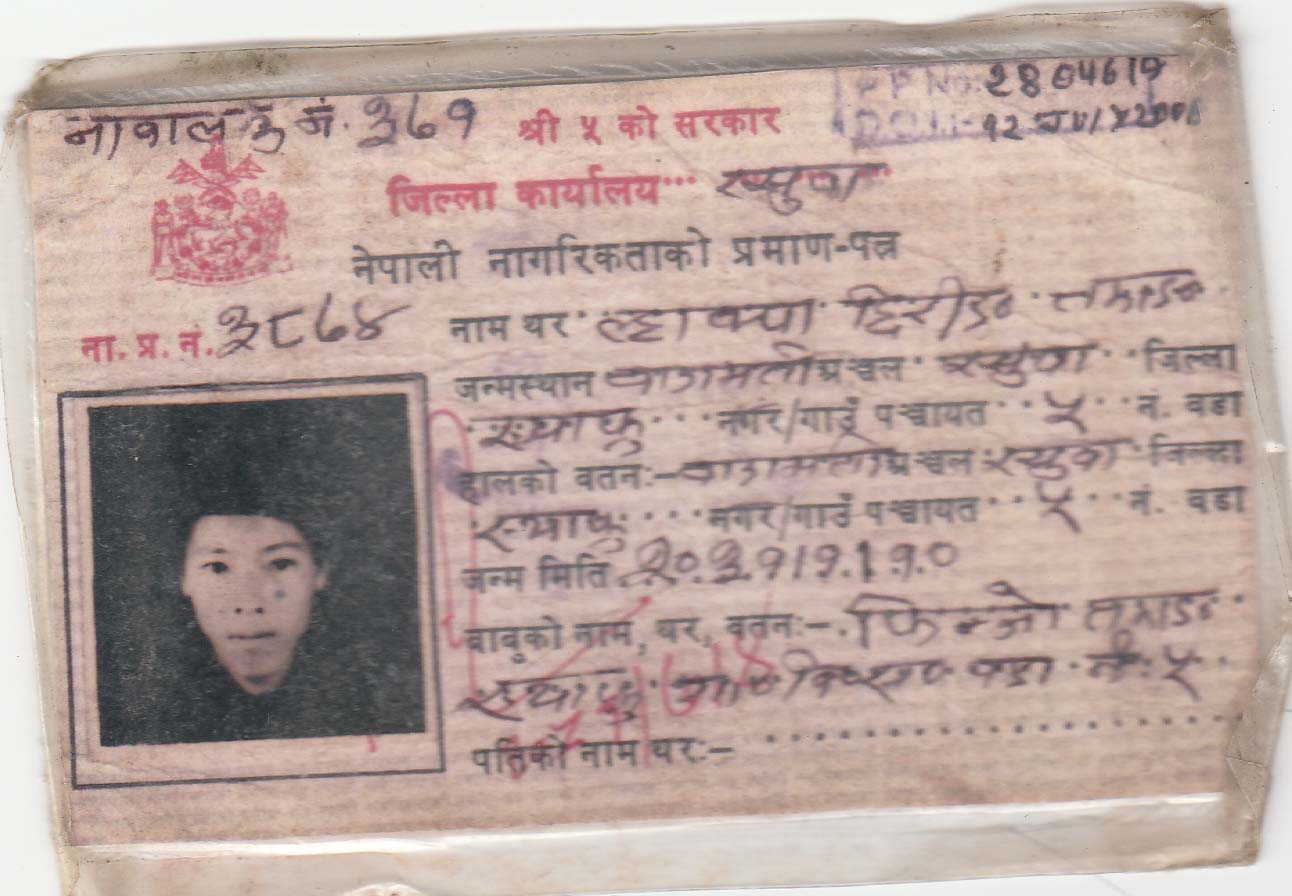 नावालक जं. ३६१ श्री ५ को सरकार
PP No: 2804617
जिल्ला कार्यालय... रसुवा
नेपाली नागरिकताको प्रमाण-पत्र
ना. प्र. नं. ३८६४
नाम थर ल्हाक्पा छिरीङ तामाङ
जन्मस्थान वागमती अञ्चल रसुवा जिल्ला
स्याफ्रु नगर/गाउँ पञ्चायत ५ नं. वडा
हालको वतनः- वागमती अञ्चल रसुवा जिल्ला
स्याफ्रु नगर/गाउँ पञ्चायत ५ नं. वडा
जन्म मिति २०३१।९।१०
बाबुको नाम, थर, वतनः- फिन्जो तामाङ
स्याफ्रु गाउँ वडा नं. ५
पतिको नाम थरः-